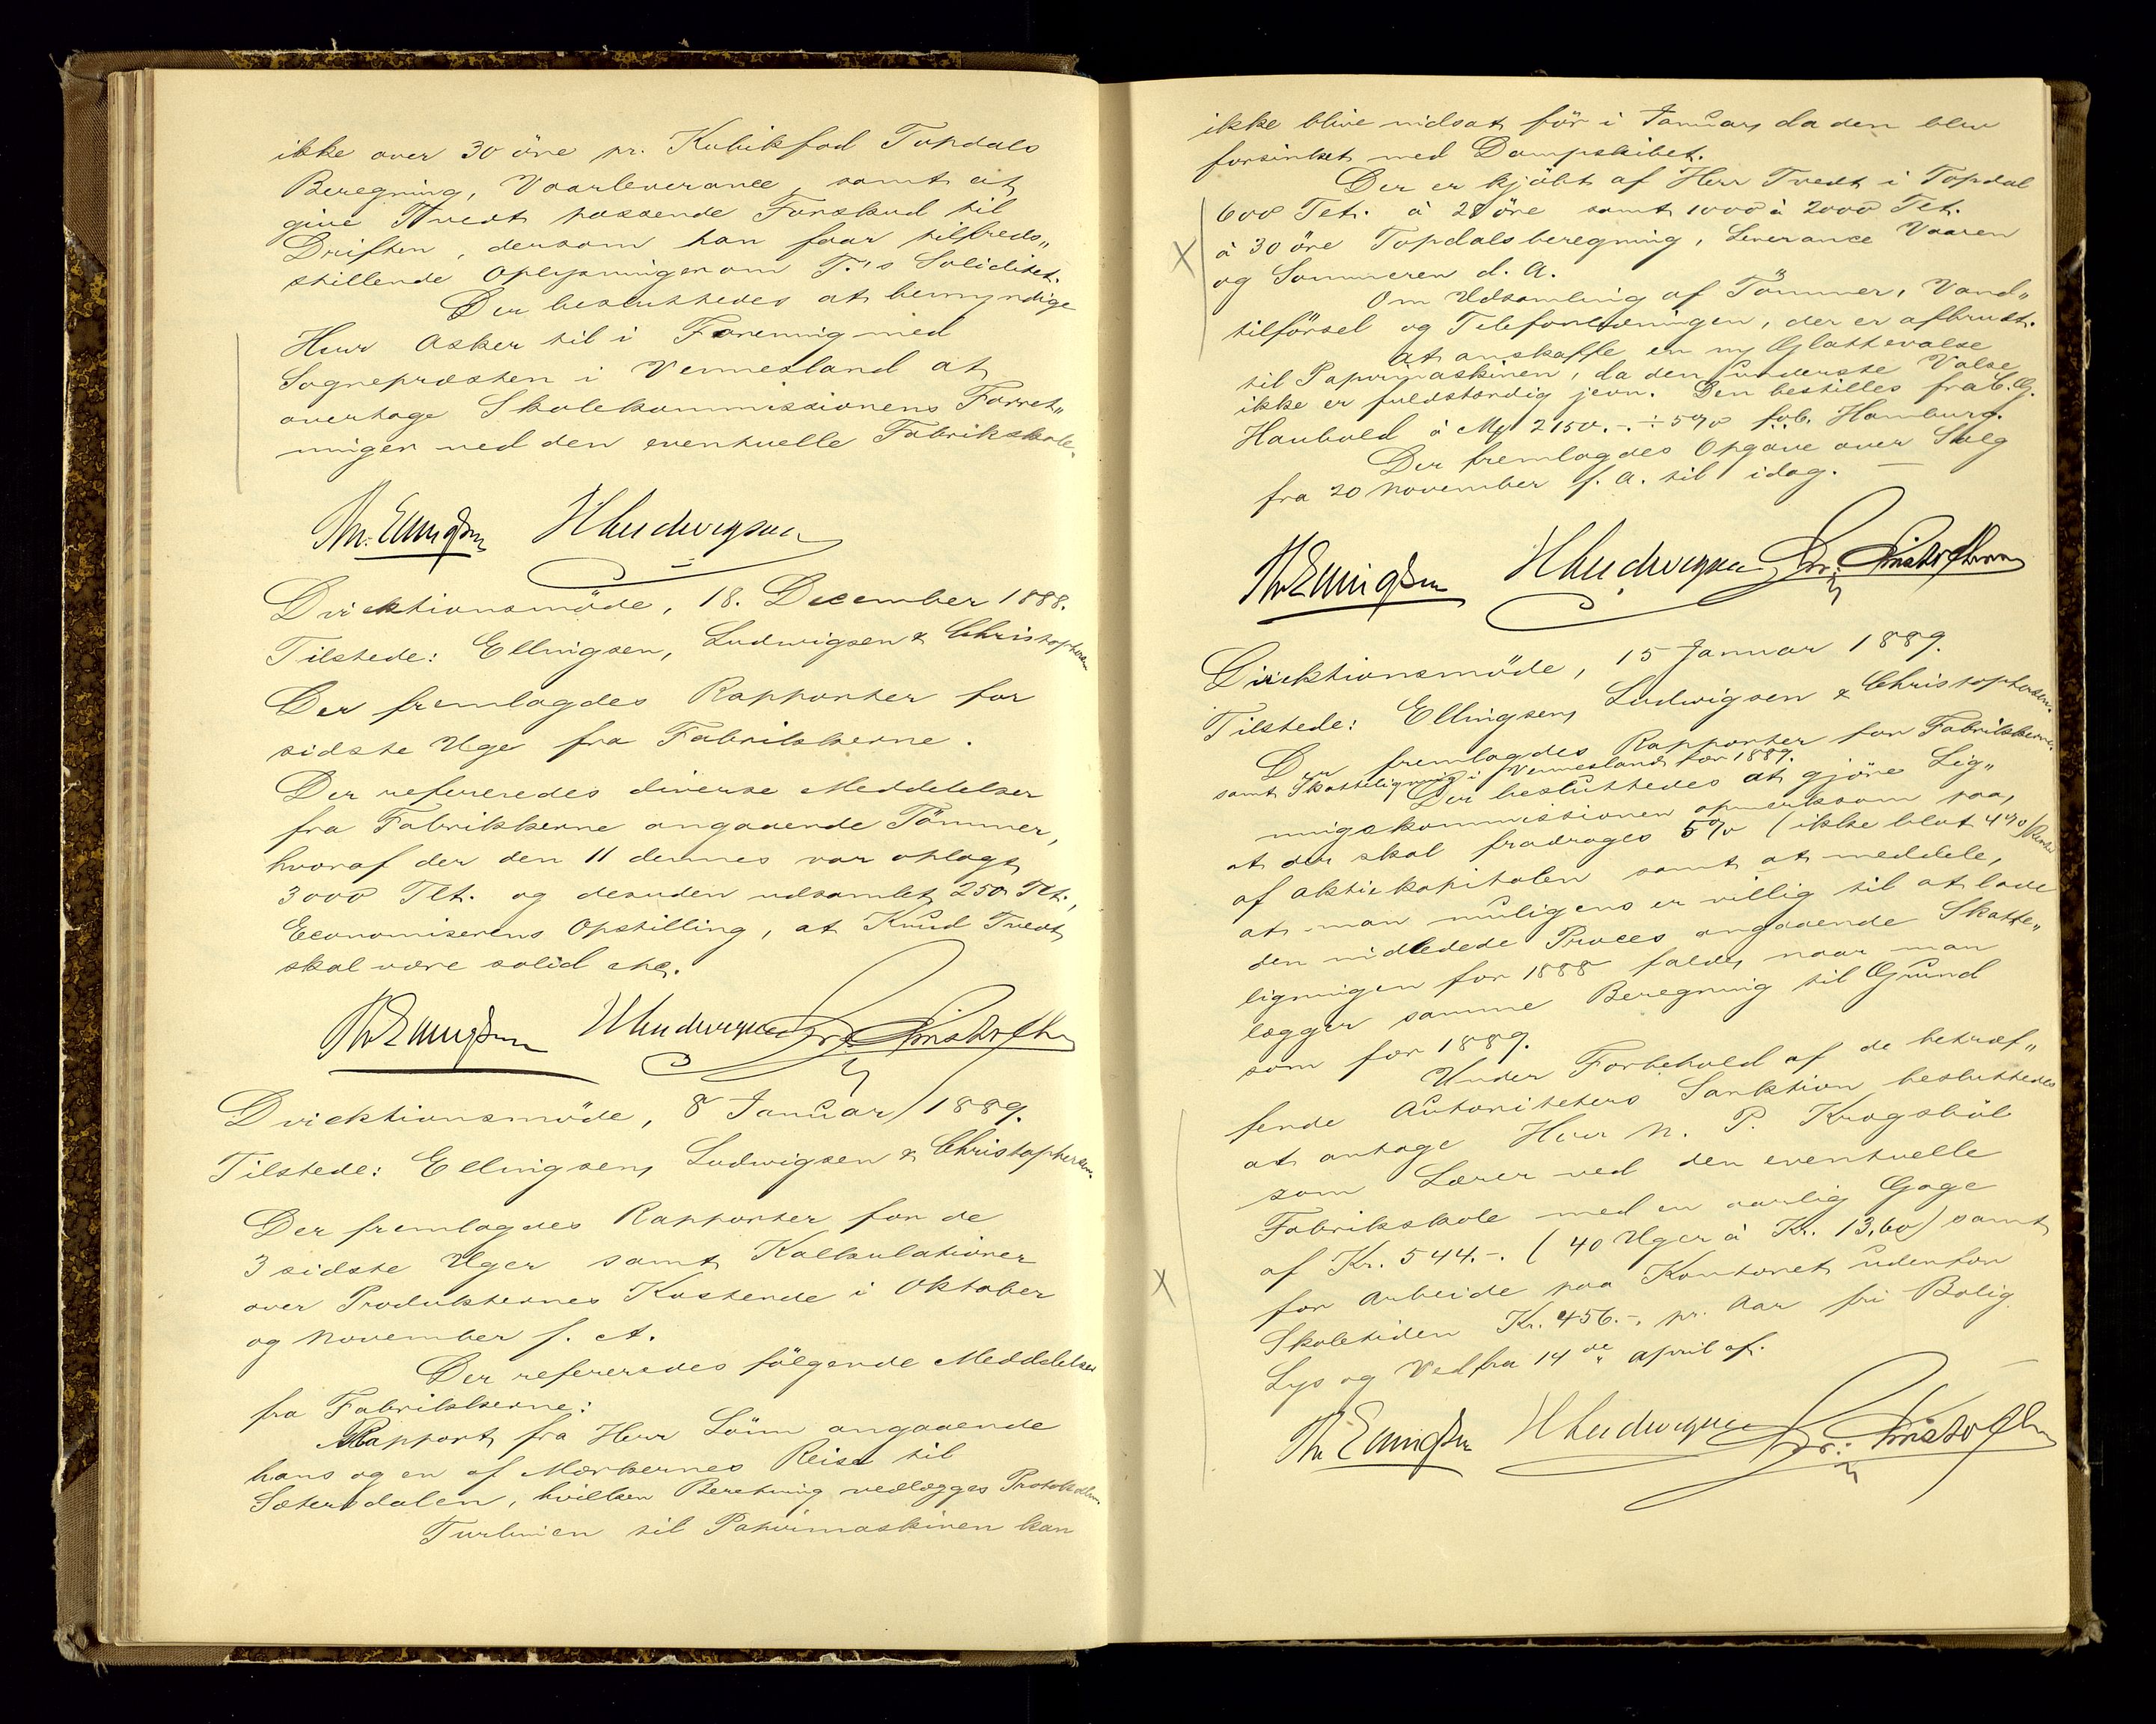 ikke over 30 öre pr. Kubikfod Topdals
Beregning, Vaarleverance, samt at
give Tvedt passende Forskud til
Driften, dersom han faar tilfreds„
stillende Oplysninger om T.'s Soliditet.
Der besluttedes at bemyndige
Herr Asker til i Forening med
Sognepræsten i Vennesland at
overtage Skolekommissionens Forret„
ninger ved den eventuelle Fabrikskole.
Th. Ellingsen HLudwigsen
Direktionsmöde, 18. December 1888.
Tilstede: Ellingsen, Ludwigsen & Christophersen
Der fremlagdes Rapporter for
sidste Uge fra Fabrikkerne.
Der refereredes diverse Meddelelser
fra Fabrikkerne angaaende Tömmer,
hvoraf der den 11 dennes var oplagt
3000 Tlt. og desuden udsamlet 250 Tlt.,
Economiserens Opstilling, at Knud Tvedt
skal være solid etc.
Th Ellingsen HLudwigsen Chr. Christophersen
Direktionsmöde, 8 Januar 1889.
Tilstede: Ellingsen, Ludwigsen & Christophersen.
Der fremlagdes Rapporter for de
3 sidste Uger samt Kalkulationer
over Produkternes Kostende i Oktober
og November f. A.
Der refereredes fölgende Meddelelser
fra Fabrikkerne:
Rapport fra Herr Löim angaaende
hans og en af Mærkernes Reise til
Sætersdalen, hvilken Beretning vedlægges Protokollen.
Turbinen til Papirmaskinen kan
ikke blive nidsat för i Januar, da den blev
forsinket med Dampskibet.
Der er kjöbt af Herr Tvedt i Topdal
600 Tlt. à 28 öre samt 1000 à 2000 Tlt.
à 30 öre Topdalsberegning, Leverance Vaaren
og Sommeren d. A.
Om Udsamling af Tömmer, Vand„
tilförsel og Telefonledningen, der er afbrudt.
At anskaffe en ny Glattevalse
til Papirmaskinen, da den underste Valse
ikke er fuldstændig jevn. Den bestilles fra C. G.
Haubold à Mk 2150.- ÷ 5% fob. Hamburg.
Der fremlagdes Opgave over Salg
fra 20 November f. A. til idag.
Th Ellingsen HLudwigsen Chr. Christophersen
Direktionsmöde, 15 Januar 1889.
Tilstede: Ellingsen, Ludwigsen & Christophersen.
Der fremlagdes Rapporter for Fabrikkerne,
samt Skatteligning i Vennesland for 1889.
Der besluttedes at gjöre Lig„
ningskommissionen opmerksom paa,
at der skal fradrages 5% (ikke blot 4%) Renter
af Aktiekapitalen samt at meddele,
at man muligens er villig til at lade
den indledede Proces angaaende Skatte„
ligningen for 1888 falde, naar man
lægger samme Beregning til Grund
som for 1889.
Under Forbehold af de betræf„
fende Autoriteters Sanktion besluttedes
at antage Herr N. P. Krogsböl
som Lærer ved den eventuelle
Fabrikskole med en aarlig Gage
af Kr. 544.-. (40 Uger à Kr. 13,60) samt
for Arbeide paa Kontoret udenfor
Skoletiden Kr. 456.-, pr. Aar fri Bolig
Lys og Ved fra 14de April af.
Th Ellingsen HLudwigsen Chr. Christophersen